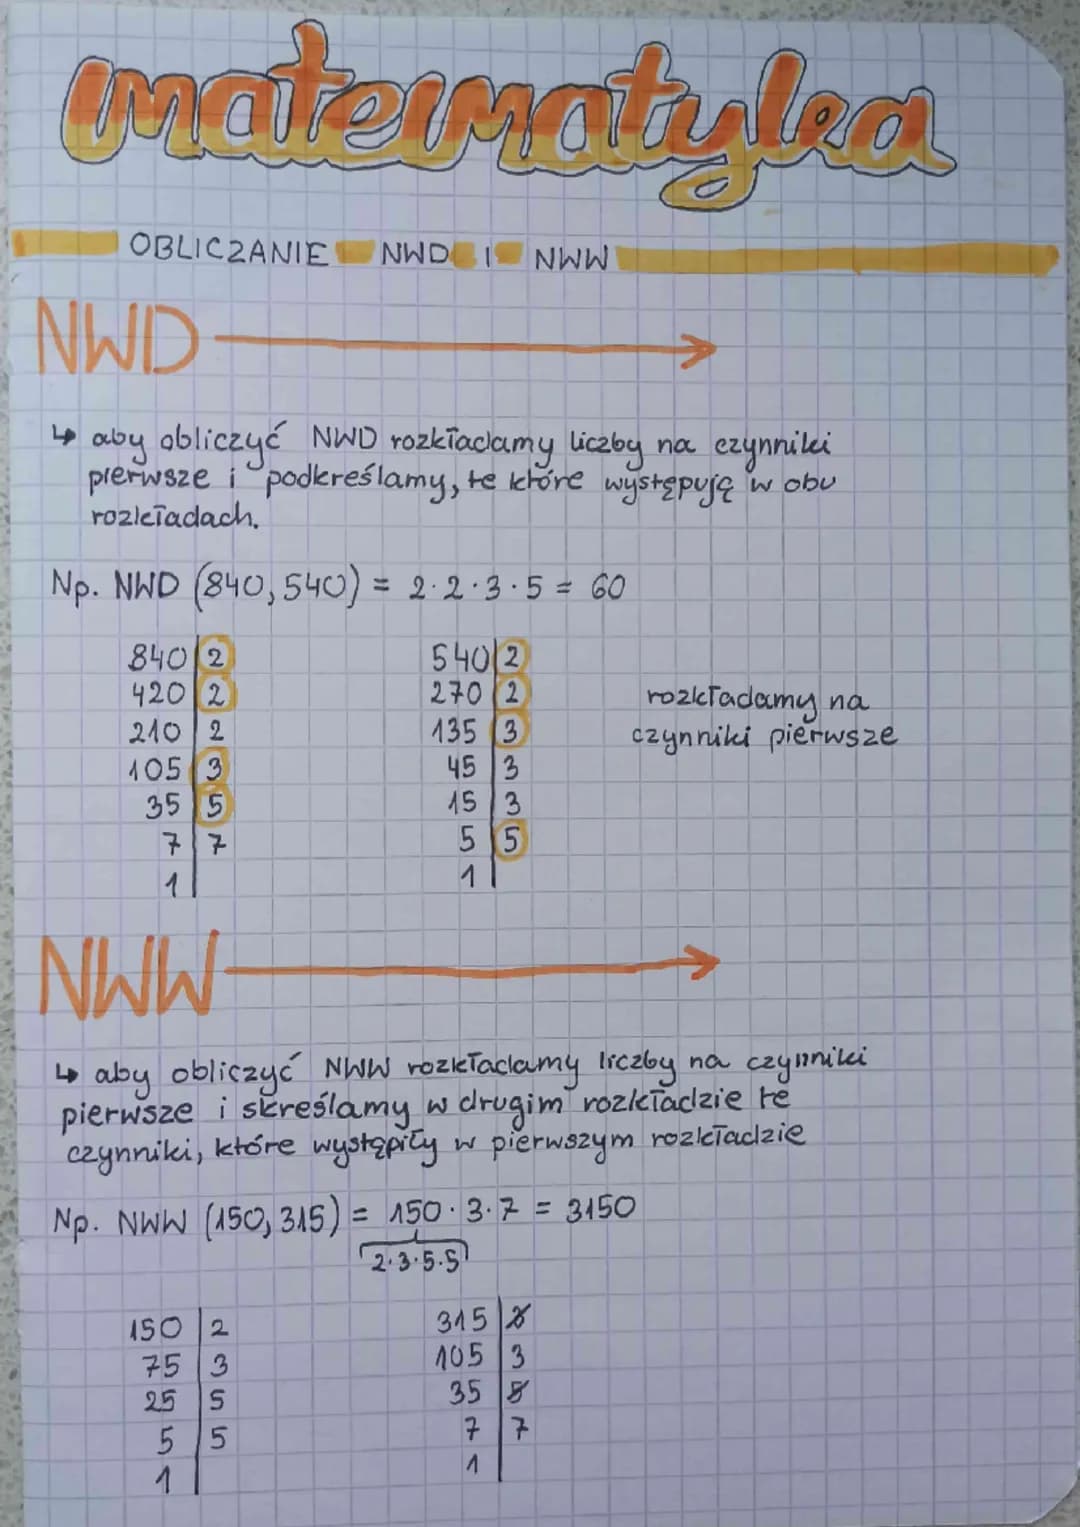 matematyka
OBLICZANIE NWD I NWW
NWD
↳ aby obliczyć NWD rozkładamy liczby na czynniki
pierwsze i podkreślamy, te które występują w obu
rozkładach.
Np. NWD (840, 540) = 2·2·3·5 = 60
840 | 2
420 | 2
210 | 2
105 | 3
35 | 5
7 | 7
1 |
540 | 2
270 | 2
135 | 3
45 | 3
15 | 3
5 | 5
1 |
rozkładamy na
czynniki pierwsze
NWW
↳ aby obliczyć NWW rozkładamy liczby na czynniki
pierwsze i skreślamy w drugim rozkładzie te
czynniki, które wystąpiły w pierwszym rozkładzie
Np. NWW (150, 315) = 150·3·7 = 3150
2·3·5·5
150 | 2
75 | 3
25 | 5
5 | 5
1 |
315 |
105 | 3
35 | 5
7 | 7
1 |